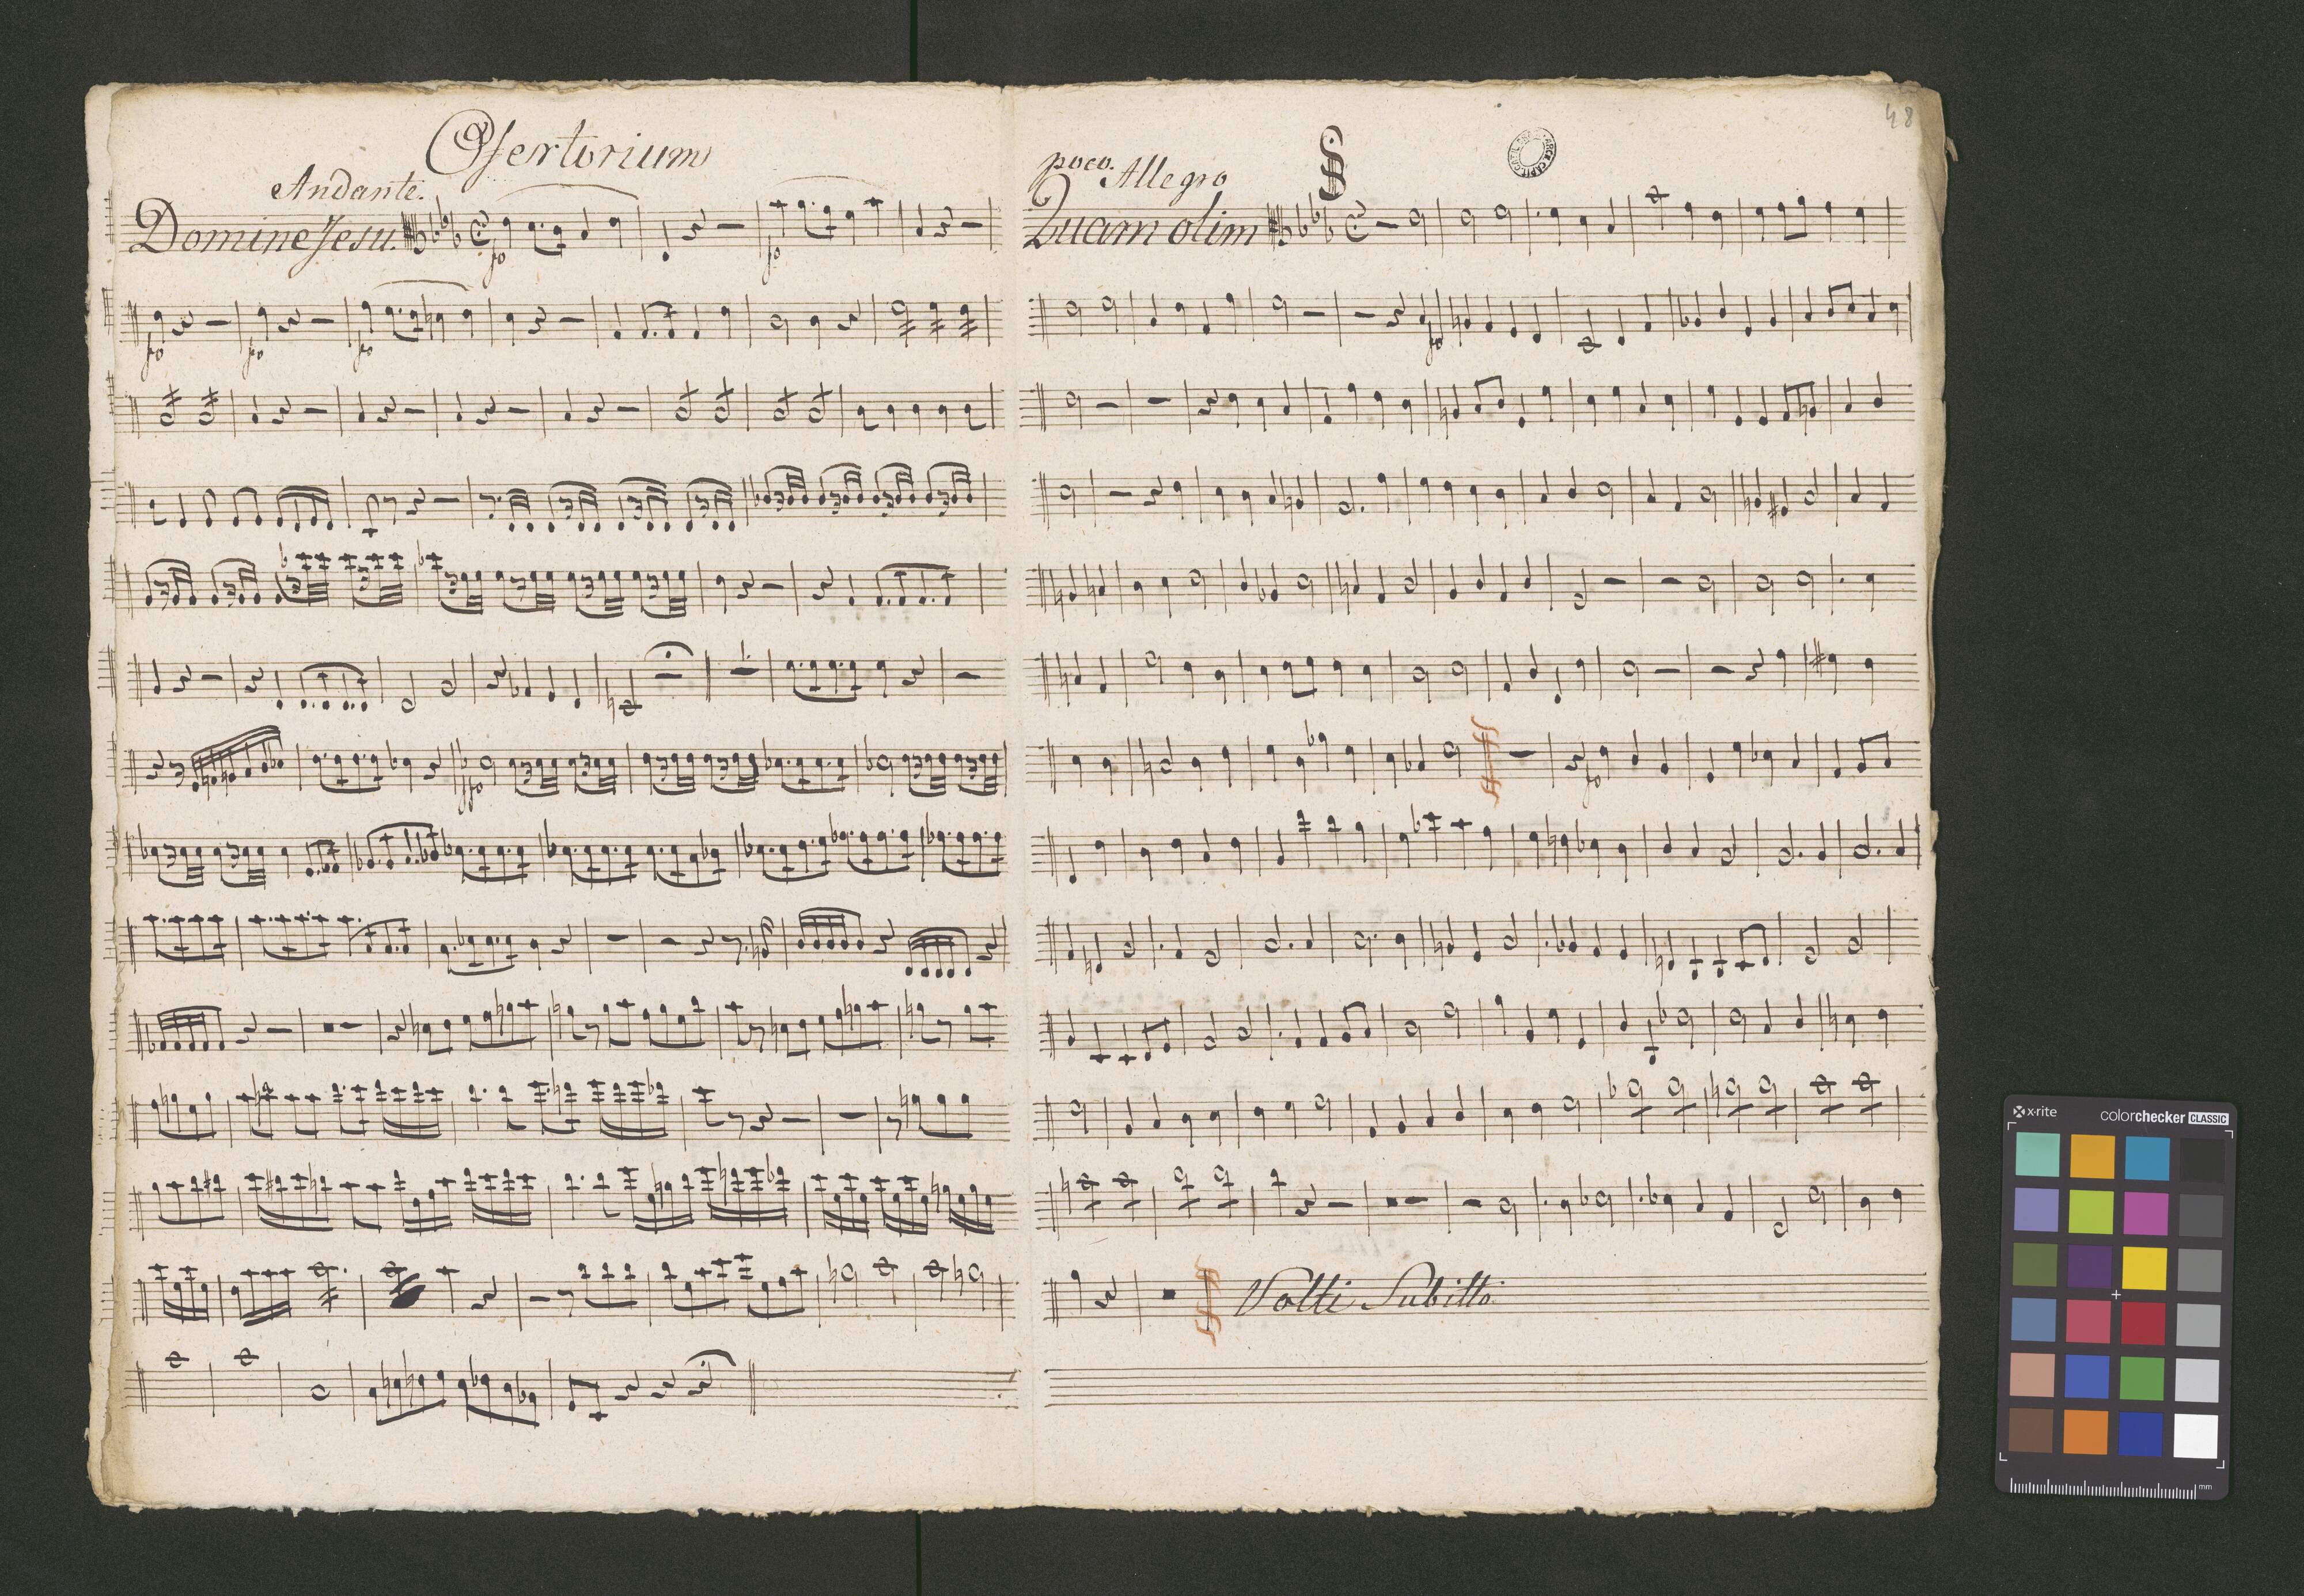 Ofertorium
Andante.
Domine Jesu.
po
po
po
po
po
pp
48
poco. Allegro
Quam olim
po
po
Volti Subitto
x-rite
colorchecker CLASSIC
mm